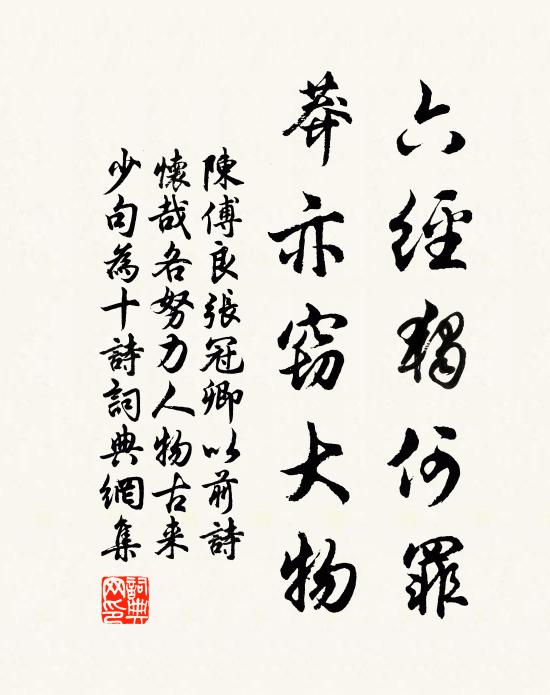 六經獨何罪
莽亦窃大物
陳傅良張冠卿以前詩
懷哉各努力人物古来
少句為十詩詞典網集
詞典網印